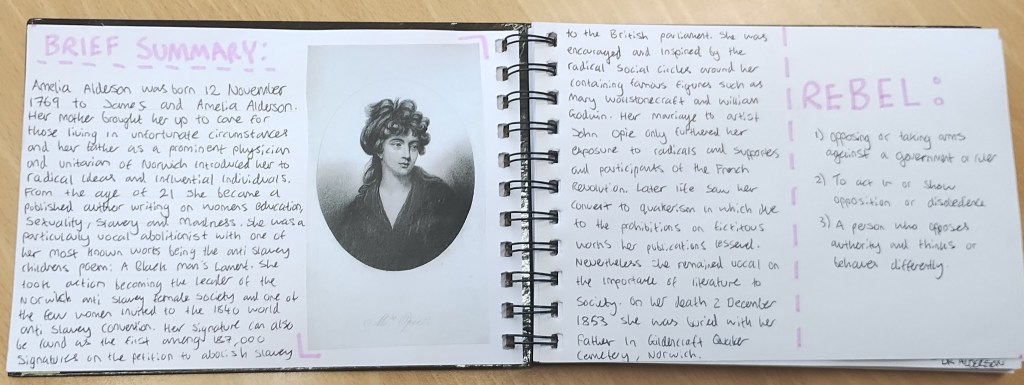 BRIEF SUMMARY:
Amelia Alderson was born 12 November
1769 to James and Amelia Alderson.
Her mother brought her up to care for
those living in unfortunate circumstances
and her father as a prominent physician
and unitarian of Norwich introduced her to
radical ideas and influential individuals.
From the age of 21 she became a
published author writing on womens education,
sexuality, slavery and madness. She was a
particularly vocal abolitionist with one of
her most known works being the anti slavery
childrens poem: A Black man's Lament. She
took action becoming the leader of the
Norwich anti slavery female society and one of
the few women invited to the 1840 world
anti slavery convention. Her signature can also
be found as the first among 187,000
signatures on the petition to abolish slavery
Mrs Opie
to the British parliament. She was
encouraged and inspired by the
radical social circles around her
containing famous figures such as
Mary Wollstonecraft and William
Godwin. Her marriage to artist
John Opie only furthered her
exposure to radicals and supporters
and participants of the French
Revolution. Later life saw her
convert to quakerism in which due
to the prohibitions on fictitous
works her publications lessened.
Nevertheless she remained vocal on
the importance of literature to
society. On her death 2 December
1853 she was buried with her
Father in Goldencroft Quaker
Cemetery, Norwich.
REBEL:
1) opposing or taking arms
against a government or ruler
2) To act in or show
opposition or disobedience
3) A person who opposes
authority and thinks or
behaves differently
ALDERSON